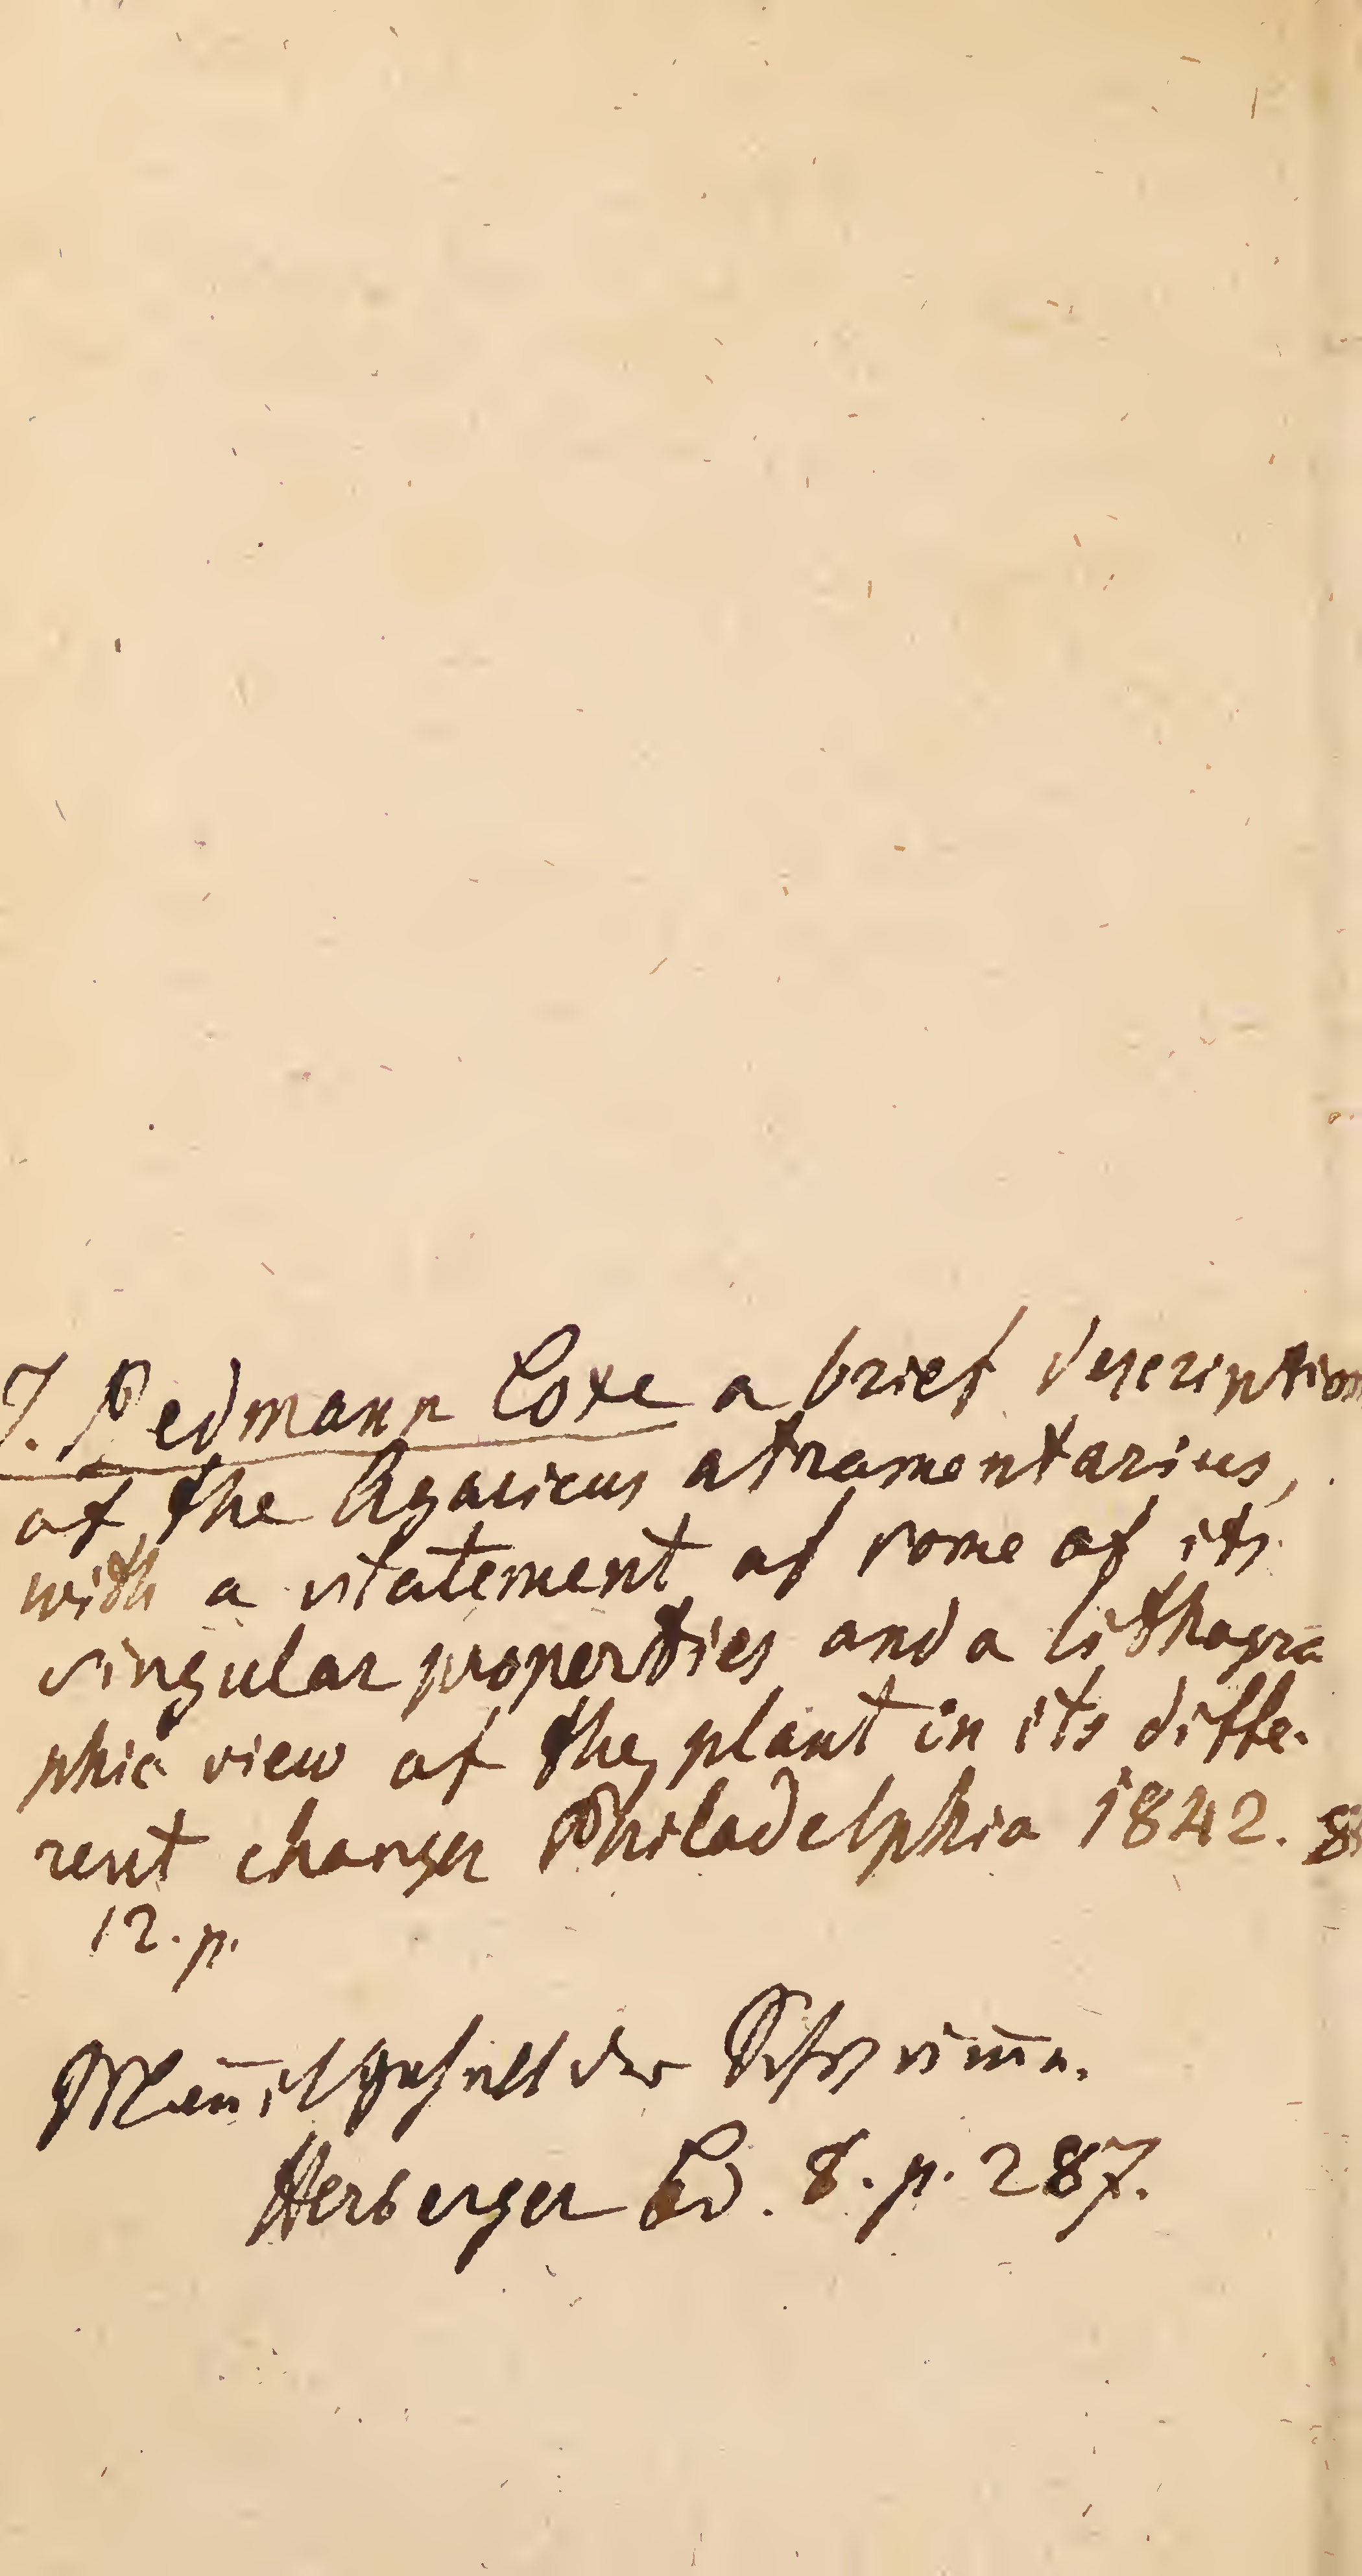 J. Redmann Coxe a brief description
of the Agaricus atramentarius,
with a statement of some of its
singular properties and a lithogra
phic view of the plant in its diffe-
rent changes Philadelphia 1842. 8
12. p.
der
Herberger Bd. 8. p. 287.